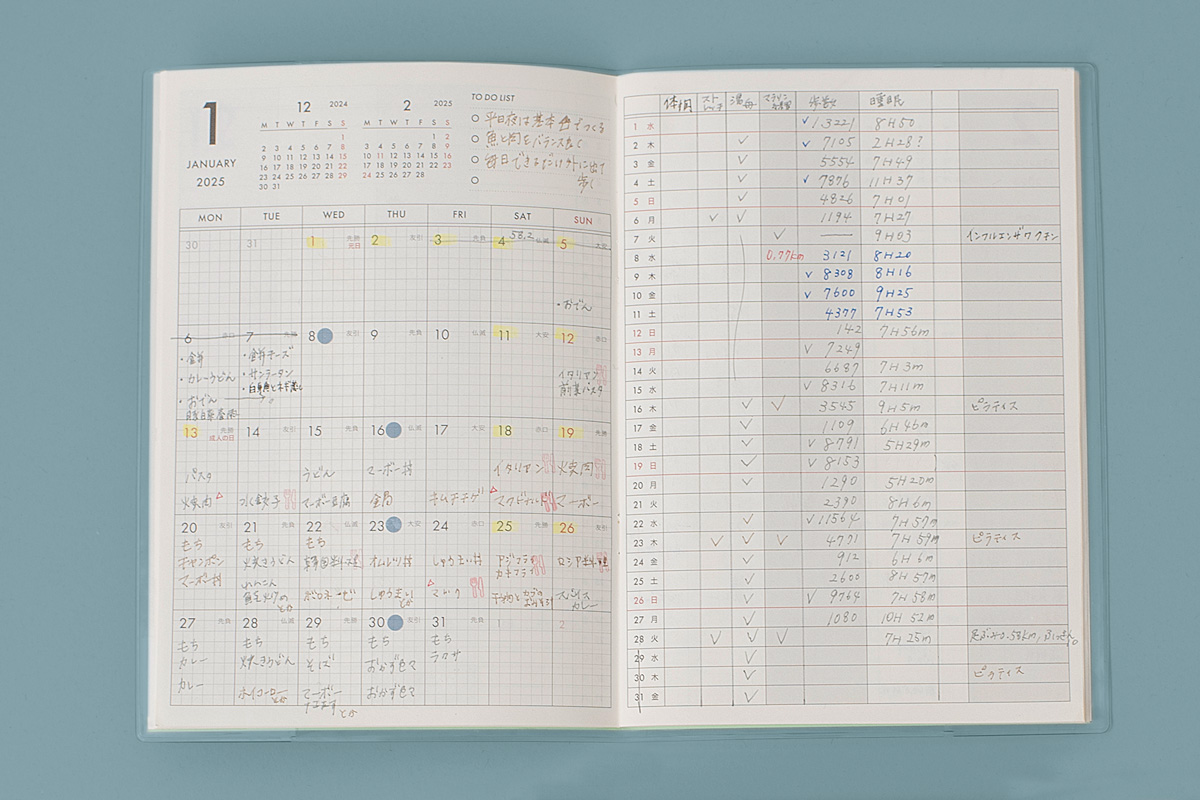 1
JANUARY
2025
12 2024
M T W T F S S
1
2 3 4 5 6 7 8
9 10 11 12 13 14 15
16 17 18 19 20 21 22
23 24 25 26 27 28 29
30 31
2 2025
M T W T F S S
1 2
3 4 5 6 7 8 9
10 11 12 13 14 15 16
17 18 19 20 21 22 23
24 25 26 27 28
TO DO LIST
平日夜は基本自炊でつくる
魚と肉をバランスよく
毎日できるだけ外に出て
歩く
MON TUE WED THU FRI SAT SUN
30 31 1 先勝 元日 2 友引 3 先負 4 58.2 仏滅 5 大安
・おでん
6 赤口 7 先勝 8 友引 9 先負 10 仏滅 11 大安 12 赤口
・カレーうどん
・サンラータン
・おでん
イタリアン
前菜パスタ
13 先勝 成人の日 14 友引 15 先負 16 仏滅 17 大安 18 赤口 19 先勝
パスタ うどん マーボー丼 イタリアン 焼肉
焼肉 水餃子 マーボー豆腐 キムチチゲ マーボー
20 友引 21 先負 22 仏滅 23 大安 24 赤口 25 先勝 26 友引
もち もち もち
チャンポン 焼きうどん 韓国料理 オムレツ丼 しゅうまい丼 アジフライ カキフライ ロシア料理
マーボー丼 れんこん ボロネーゼ しゅうまいとか マック スパイスカレー
27 先負 28 仏滅 29 先勝 30 友引 31 先負 1 2
もち もち もち もち もち
カレー 焼きうどん そば おかず色々 ラクサ
カレー ホイコーローとか マーボーナスとか おかず色々
体調 ストレッチ 湯舟 マラソン 歩数 睡眠
1 水 ✓13221 8H50
2 木 ✓ ✓7105 2H28?
3 金 ✓ 5554 7H49
4 土 ✓ ✓7876 11H37
5 日 ✓ 4826 7H01
6 月 ✓ ✓ 1194 7H27
7 火 ✓ — 9H03 インフルエンザワクチン
8 水 0.77km 3121 8H20
9 木 ✓8308 8H16
10 金 ✓7600 9H25
11 土 4377 7H53
12 日 142 7H56m
13 月 ✓7249
14 火 6687 7H3m
15 水 ✓8316 7H11m
16 木 ✓ ✓ 3545 9H5m ピラティス
17 金 ✓ 1109 6H46m
18 土 ✓ ✓8791 5H29m
19 日 ✓ ✓8153
20 月 ✓ 1290 5H20m
21 火 2390 8H6m
22 水 ✓ ✓11564 7H57m
23 木 ✓ ✓ ✓ 4771 7H59m ピラティス
24 金 ✓ 912 6H6m
25 土 ✓ 2600 8H57m
26 日 ✓ ✓9764 7H58m
27 月 ✓ 1080 10H52m
28 火 ✓ ✓ ✓ 7H25m
29 水 ✓
30 木 ✓ ピラティス
31 金 ✓